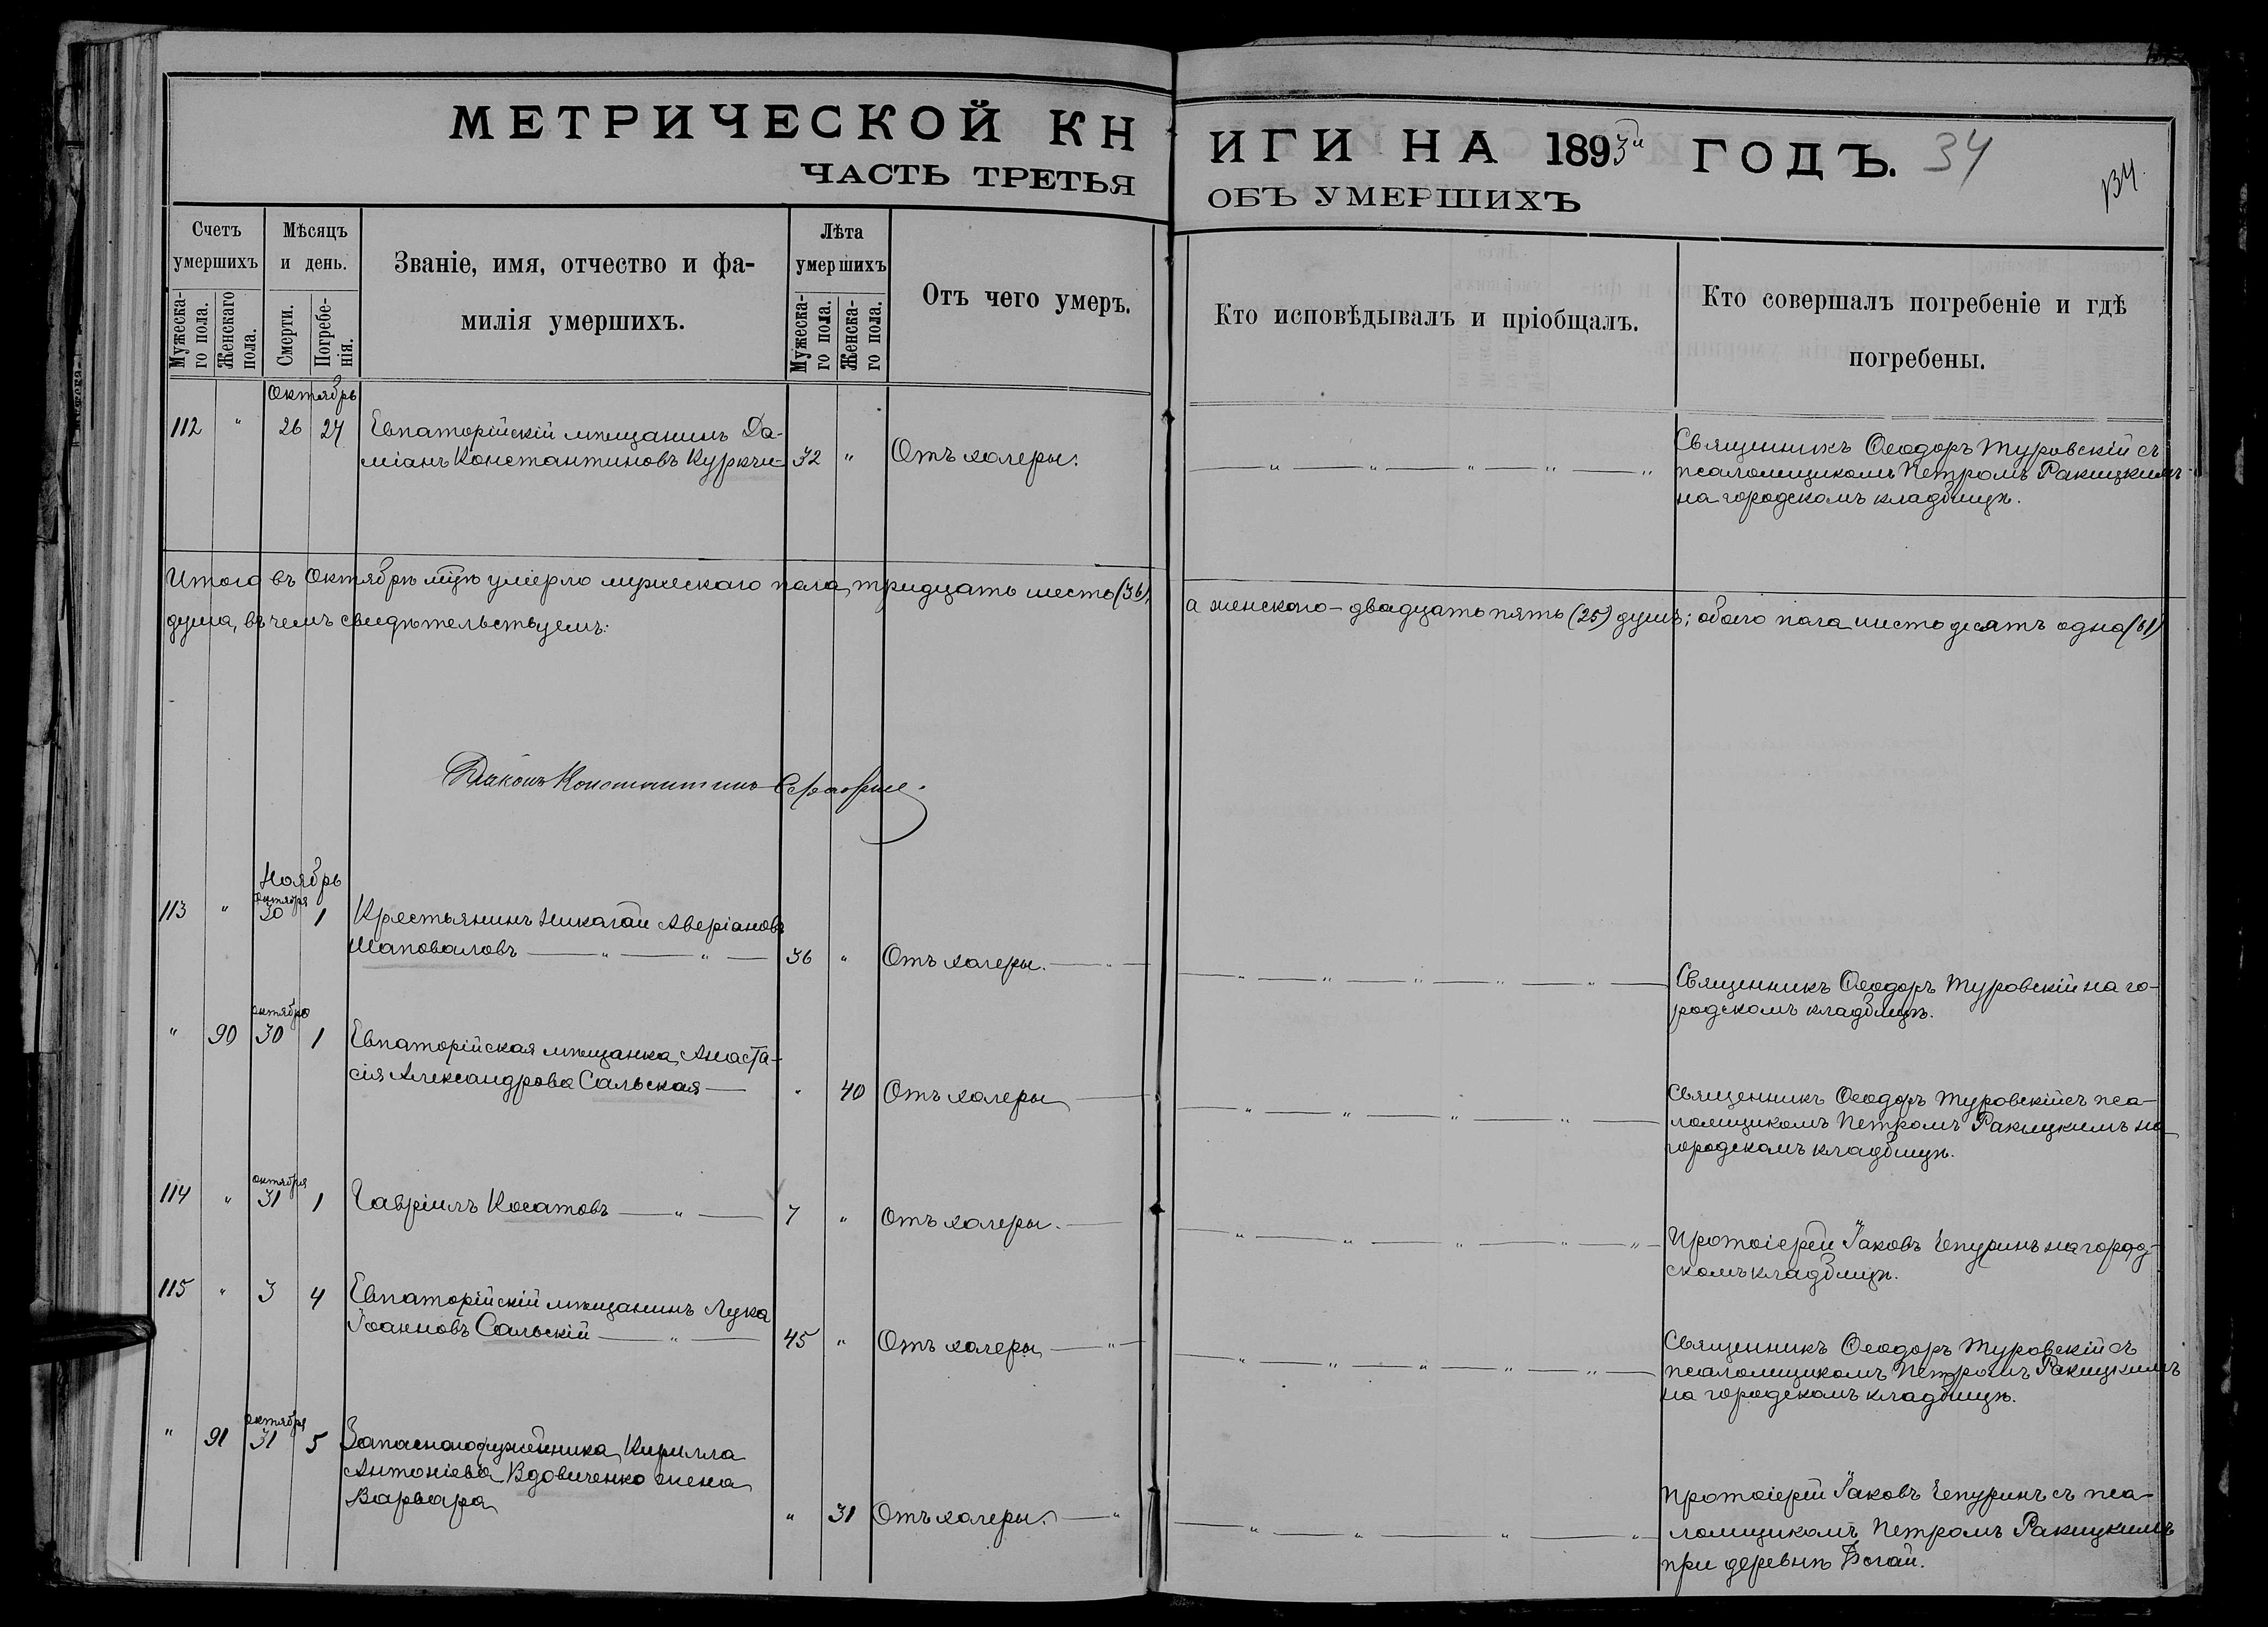 МЕТРИЧЕСКОЙ КНИГИ НА 1893й ГОДЪ. 34
134.
ЧАСТЬ ТРЕТЬЯ ОБЪ УМЕРШИХЪ
Счетъ умершихъ
Мужеска-го пола.
Женскаго пола.
Мѣсяцъ и день.
Смерти.
Погребе-нія.
Званіе, имя, отчество и фа-
милія умершихъ.
Лѣта умершихъ
Мужеска-го пола.
Женска-го пола.
Отъ чего умеръ.
Кто исповѣдывалъ и пріобщалъ.
Кто совершалъ погребеніе и гдѣ
погребены.
Октябрь
112 " 26 27 Евпаторійскій мѣщанинъ Да-
міанъ Константиновъ Куркчи 32 " Отъ холеры.
Священникъ Ѳеодоръ Туровскій съ
псаломщикомъ Петромъ Ракицкимъ
на городскомъ кладбищѣ.
Итого въ Октябрѣ мцѣ умерло мужескаго пола тридцать шесть (36), а женского - двадцать пять (25) душъ; обоего пола шестьдесятъ одна (61)
душа, въ чемъ свидѣтельствуемъ:
Діаконъ Константинъ
Ноябрь
октября
113 " 30 1 Крестьянинъ Николай Аверіановъ
Шаповаловъ 36 " Отъ холеры.
Священникъ Ѳеодоръ Туровскій на го-
родскомъ кладбищѣ.
октября
" 90 30 1 Евпаторійская мѣщанка Анаста-
сія Александрова Сальская " 40 Отъ холеры
Священникъ Ѳеодоръ Туровскій съ пса-
ломщикомъ Петромъ Ракицкимъ на
городскомъ кладбищѣ.
октября
114 " 31 1 Гавріилъ Косатовъ 7 " Отъ холеры.
Протоіерей Іаковъ Чепуринъ на город-
скомъ кладбищѣ.
115 " 3 4 Евпаторійскій мѣщанинъ Лука
Іоанновъ Сальскій 45 " Отъ холеры
Священникъ Ѳеодоръ Туровскій съ
псаломщикомъ Петромъ Ракицкимъ
на городскомъ кладбищѣ.
октября
" 91 31 5 Запаснаго Кирилла
Антоніева Вдовиченко жена
Варвара " 31 Отъ холеры.
Протоіерей Іаковъ Чепуринъ съ пса-
ломщикомъ Петромъ Ракицкимъ
при деревнѣ Богай.